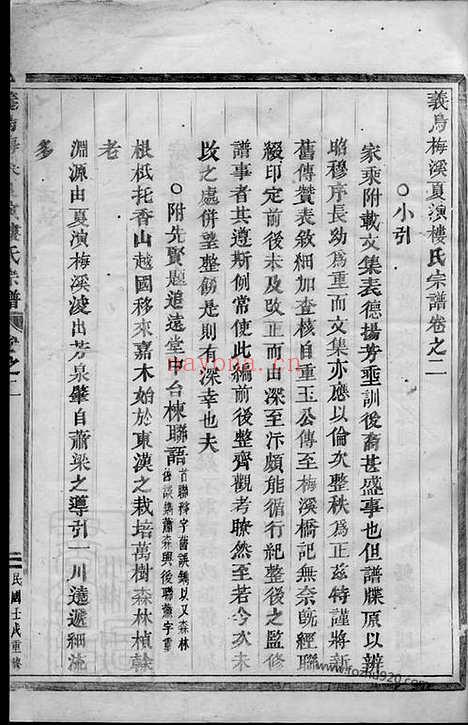 義烏梅溪夏演樓氏宗譜卷之二
○小引
家乘附載文集表德揚芳垂訓後裔甚盛事也但譜牒原以辨
昭穆序長幼爲重而文集亦應以倫次整秩爲正茲特謹將新
舊傳贊表敘細加查核自重玉公傳至梅溪橋記無奈旣經聯
綴印定前後未及改正而由深至汴頗能循行紀整後之監修
譜事者其遵斯例常使此編前後整齊觀者瞭然至若今次未
改之處併望整飭是則有深幸也夫
○附先賢題追遠堂 台棟聯語
首聯幹字舊誤 以又森林
舊誤 蕭森與後聯蕭字重
根柢托香山越國移來嘉木始於東漢之栽培萬樹森林楨榦
老
淵源由夏演梅溪浚出芳泉肇自蕭梁之導引一川遠遞細流
多
樓氏宗譜 卷之二
二
民國壬戌重修
nayona.cn
www.fozhu920.com